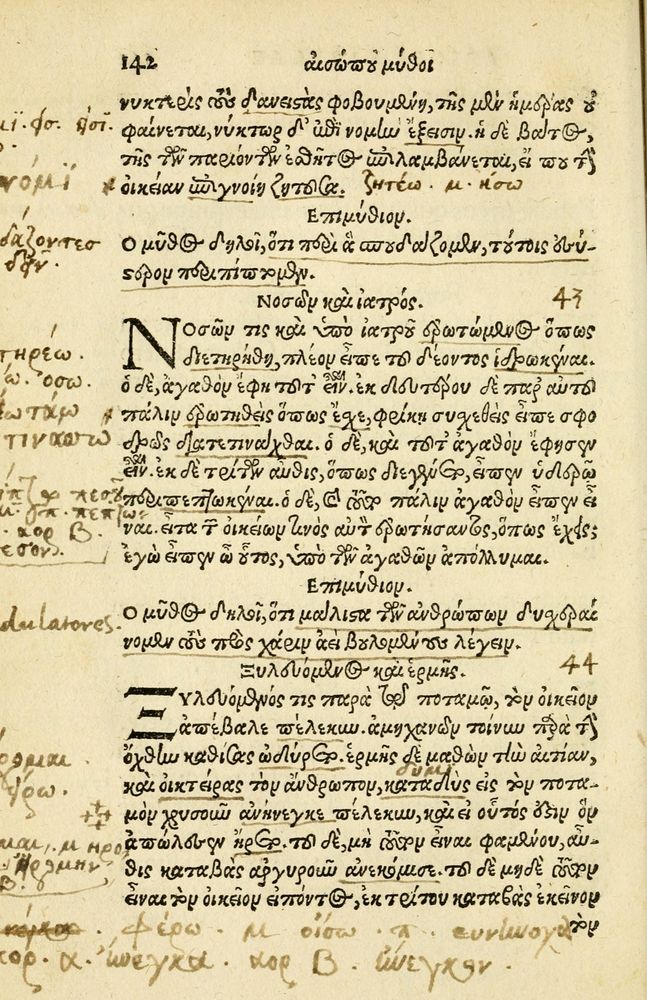 142 αισώπου μύθοι
νυκτερὶς τοὺς δανειστὰς φοβουμένη, τῆς μὲν ἡμέρας οὐ
φαίνεται, νύκτωρ δ' ἐπὶ νομὴν ἔξεισιν. ἡ δὲ βάτος,
τῆς τῶν παριόντων ἐσθῆτος ἐπιλαμβάνεται, εἴ που τὴν
οἰκείαν ἐπιγνοίη ζητοῦσα. ζητέω . μ . ήσω
Επιμύθιον.
Ο μῦθος δηλοῖ, ὅτι περὶ ἃ σπουδάζομεν, τούτοις ὑσύ-
στερον περιπίπτομεν.
Νοσῶν καὶ ἰατρός. 43
Νοσῶν τις καὶ ὑπὸ ἰατροῦ ἐρωτώμενος ὅπως
διετηρήθη, πλέον εἶπε τοῦ δέοντος ἱδρωκέναι.
ὁ δὲ, ἀγαθὸν ἔφη τοῦτ' εἶναι. ἐκ δευτέρου δὲ παρ' αὐτοῦ
πάλιν ἐρωτηθεὶς ὅπως ἔχει, φρίκῃ συσχεθεὶς εἶπε σφο
δρῶς διατετινάχθαι. ὁ δὲ, καὶ τοῦτ' ἀγαθὸν ἔφησεν
εἶναι. ἐκ δὲ τρίτων αὖθις, ὅπως διεγένετο, εἶπεν ὑδέρῳ
περιπεπτωκέναι. ὁ δὲ, καὶ τοῦτο πάλιν ἀγαθὸν εἶπεν εἶ
ναι. εἶτα τῶν οἰκείων τινὸς αὐτὸν ἐρωτήσαντος, ὅπως ἔχεις;
ἐγὼ εἶπεν ὦ οὗτος, ὑπὸ τῶν ἀγαθῶν ἀπόλλυμαι.
Επιμύθιον.
Ο μῦθος δηλοῖ, ὅτι μάλιστα τῶν ἀνθρώπων δυσχεραί
νομεν τοὺς πρὸς χάριν ἀεὶ βουλομένους λέγειν.
Ξυλευόμενος καὶ ἑρμῆς. 44
Ξυλευόμενός τις παρὰ τινι ποταμῷ, τὸν οἰκεῖον
ἀπέβαλε πέλεκυν. ἀμηχανῶν τοίνυν παρὰ τὴν
ὄχθην καθίσας ὠδύρετο. ἑρμῆς δὲ μαθὼν τὴν αἰτίαν,
καὶ οἰκτείρας τὸν ἄνθρωπον, καταδὺς εἰς τὸν ποτα-
μὸν χρυσοῦν ἀνήνεγκε πέλεκυν, καὶ εἰ οὗτός ἐστιν ὃν
ἀπώλεσεν ἤρετο. τοῦ δὲ, μὴ τοῦτον εἶναι φαμένου, αὖ-
θις καταβὰς ἀργυροῦν ἀνεκόμισε. τοῦ δὲ μηδὲ τοῦτον
εἶναι τὸν οἰκεῖον εἰπόντος, ἐκ τρίτου καταβὰς ἐκεῖνον
τὸν
νόμι
δάζοντες
τηρέω .
ω . όσω .
τιναστω
dulatores.
φέρω . μ οίσω . π .
αορ . α . ήνεγκα . αορ β . ήνεγκον .